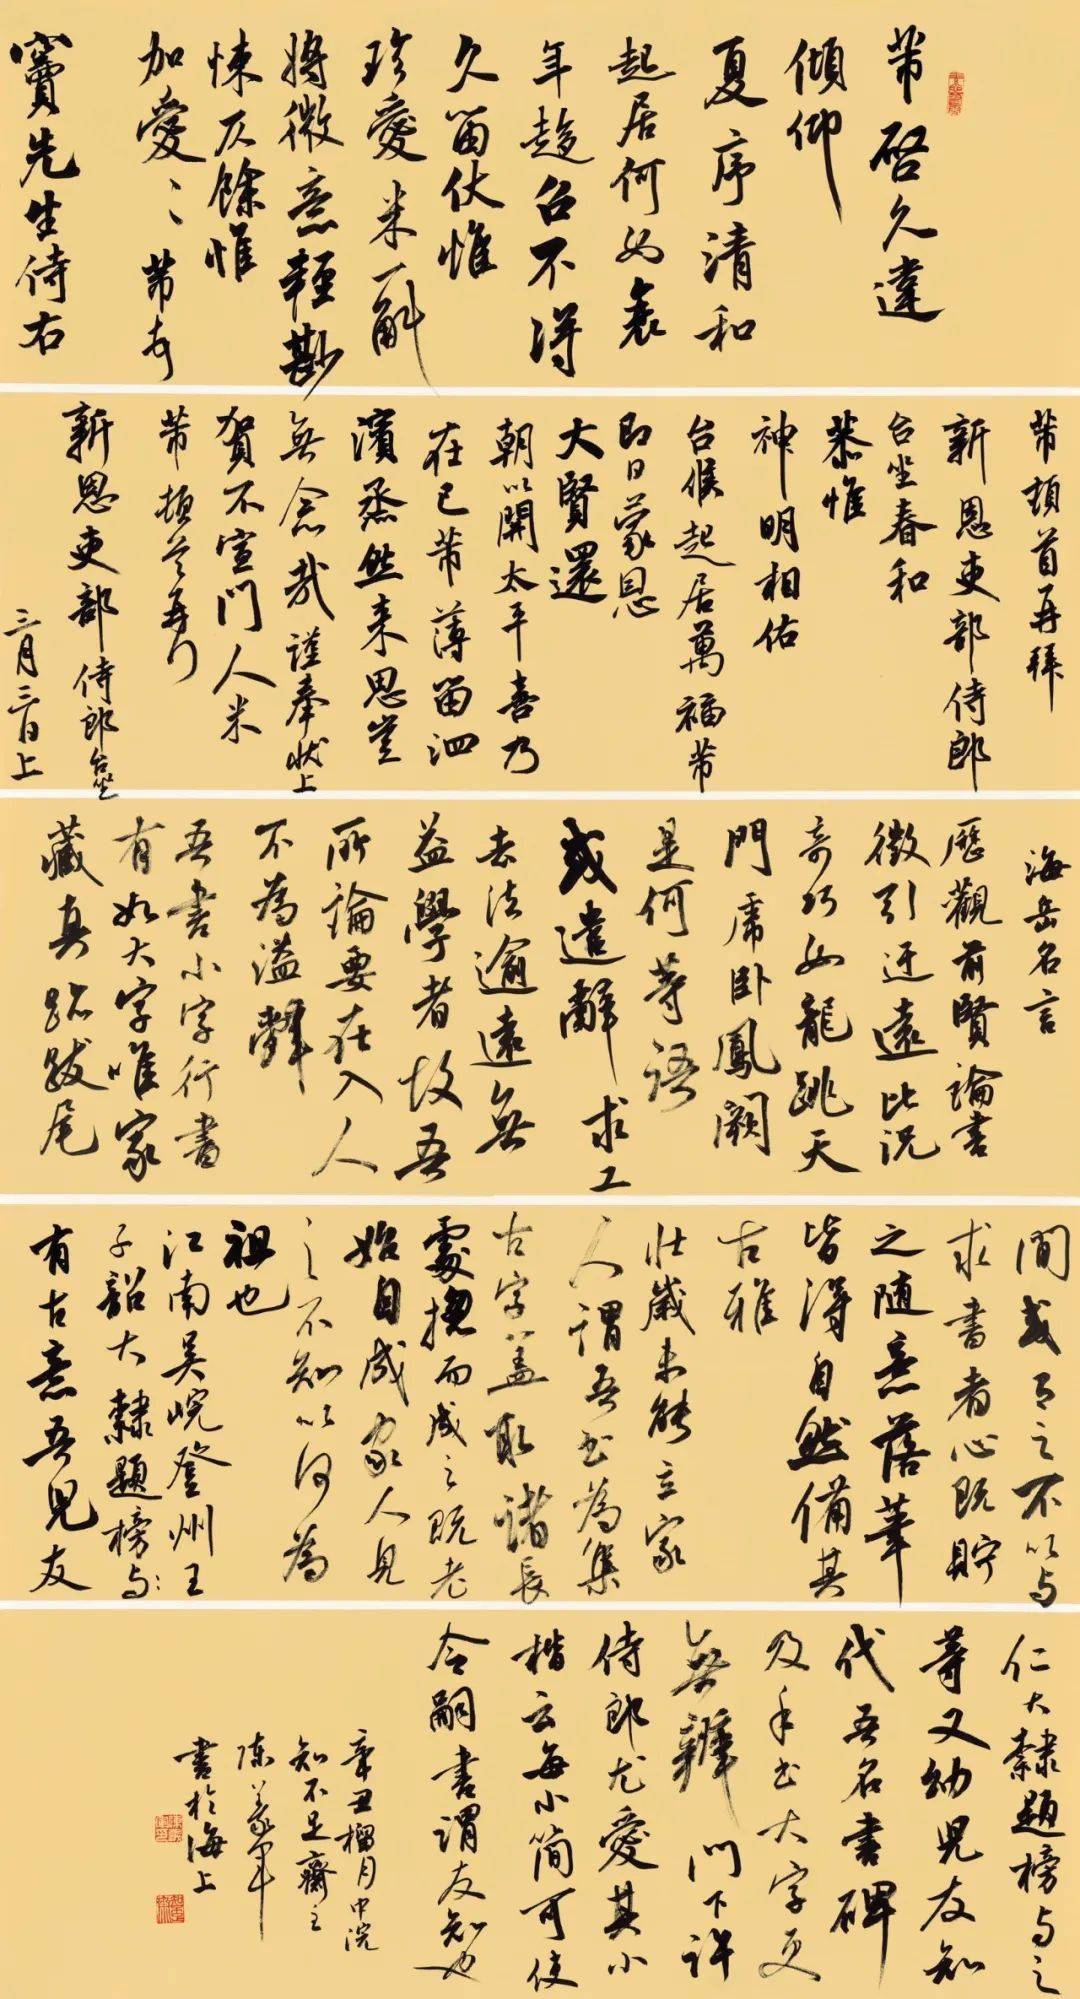 芾启久違
傾仰
夏序清和
起居何如衰
年趨召不得
久留伏惟
珍愛米一斛
將微意輕尠
悚仄餘惟
加愛〻芾頓首
竇先生侍右
芾頓首再拜
新恩吏部侍郎
台坐春和
恭惟
神明相佑
台候起居萬福芾
即日蒙恩
大賢還
朝以開太平喜乃
在己芾薄留泗
濱烝然来思豈
無念哉謹奉狀上
賀不宣門人米
芾頓首再行
新恩吏部侍郎台坐
三月三日上
海岳名言
歷觀前賢論書
徵引迂遠比况
奇巧如龍跳天
門虎卧鳳闕
是何等語
或遣辭求工
去法逾遠無
益學者故吾
所論要在入人
不為溢辭
吾書小字行書
有如大字唯家
藏真跡跋尾
間或有之不以与
求書者心既貯
之随意落筆
皆得自然備其
古雅
壮歲未能立家
人謂吾書為集
古字盖取諸長
處揔而成之既老
始自成家人見
之不知以何為
祖也
江南吴峴登州王
子韶大隸題榜与〻
有古意吾兒友
仁大隸題榜与之
等又幼兒友知
代吾名書碑
及手書大字更
無辨門下許
侍郎尤愛其小
楷云每小簡可使
令嗣書謂友知也
辛丑榴月中浣
知不足齋主
陈羲军
書於海上